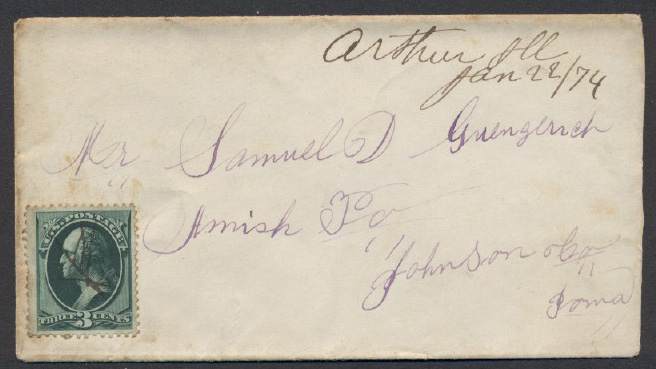 Arthur Ill
Jan 22/74
Mr Samuel D Guengerich
Amish Po
Johnson Co
Iowa
U.S. POSTAGE
THREE 3 CENTS